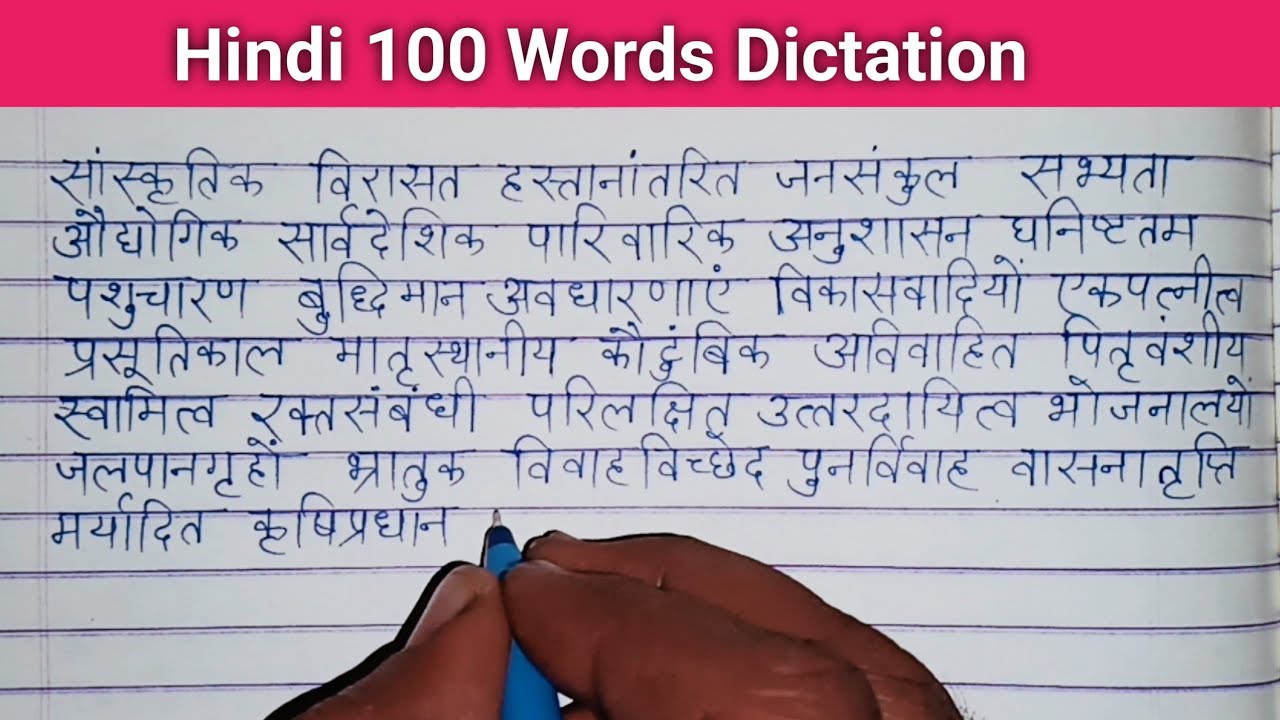 Hindi 100 Words Dictation
सांस्कृतिक विरासत हस्तानांतरित जनसंकुल सभ्यता
औद्योगिक सार्वदेशिक पारिवारिक अनुशासन घनिष्टतम
पशुचारण बुद्धिमान अवधारणाएं विकासवादियों एकपत्नीत्व
प्रसूतिकाल मातृस्थानीय कौटुंबिक अविवाहित पितृवंशीय
स्वामित्व रक्तसंबंधी परिलक्षित उत्तरदायित्व भोजनालयों
जलपानगृहों भ्रातुक विवाहविच्छेद पुनर्विवाह वासनातृप्ति
मर्यादित कृषिप्रधान